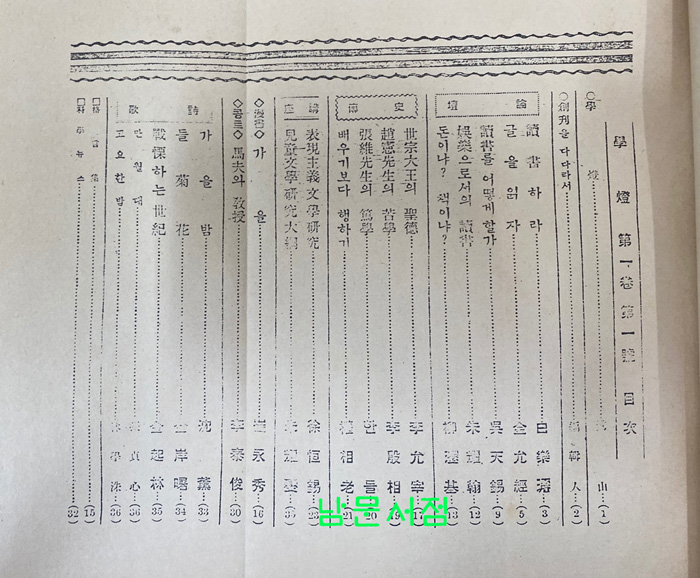 學燈 第一卷 第一號 目次
○學燈 山 (1)
○創刊을 다다라서 編輯人 (2)
論壇
讀書하라 白樂濬 (3)
글을 읽자 金允經 (5)
讀書를 어떻게할가 吳天錫 (9)
娛樂으로서의 讀書 朱耀翰 (12)
돈이냐? 책이냐? 柳瀅基 (13)
史譚
世宗大王의 聖德 李允宰 (17)
趙憲先生의 苦學 李殷相 (19)
張維先生의 篤學 한들 (20)
배우기보다 행하기 權相老 (21)
講座
表現主義文學硏究 徐恒錫 (23)
兒童文學硏究大綱 (35)
◇漫畵◇ 가을 崔永秀 (16)
◇콩트◇ 馬夫와 敎授 李泰俊 (30)
詩歌
가을밤 沈薰 (33)
들菊花 金岸曙 (34)
戰慄하는世紀 金起林 (35)
만월대 貞心 (36)
고요한밤 學洙 (36)
(15)
□科學뉴스 (32)
남문서점